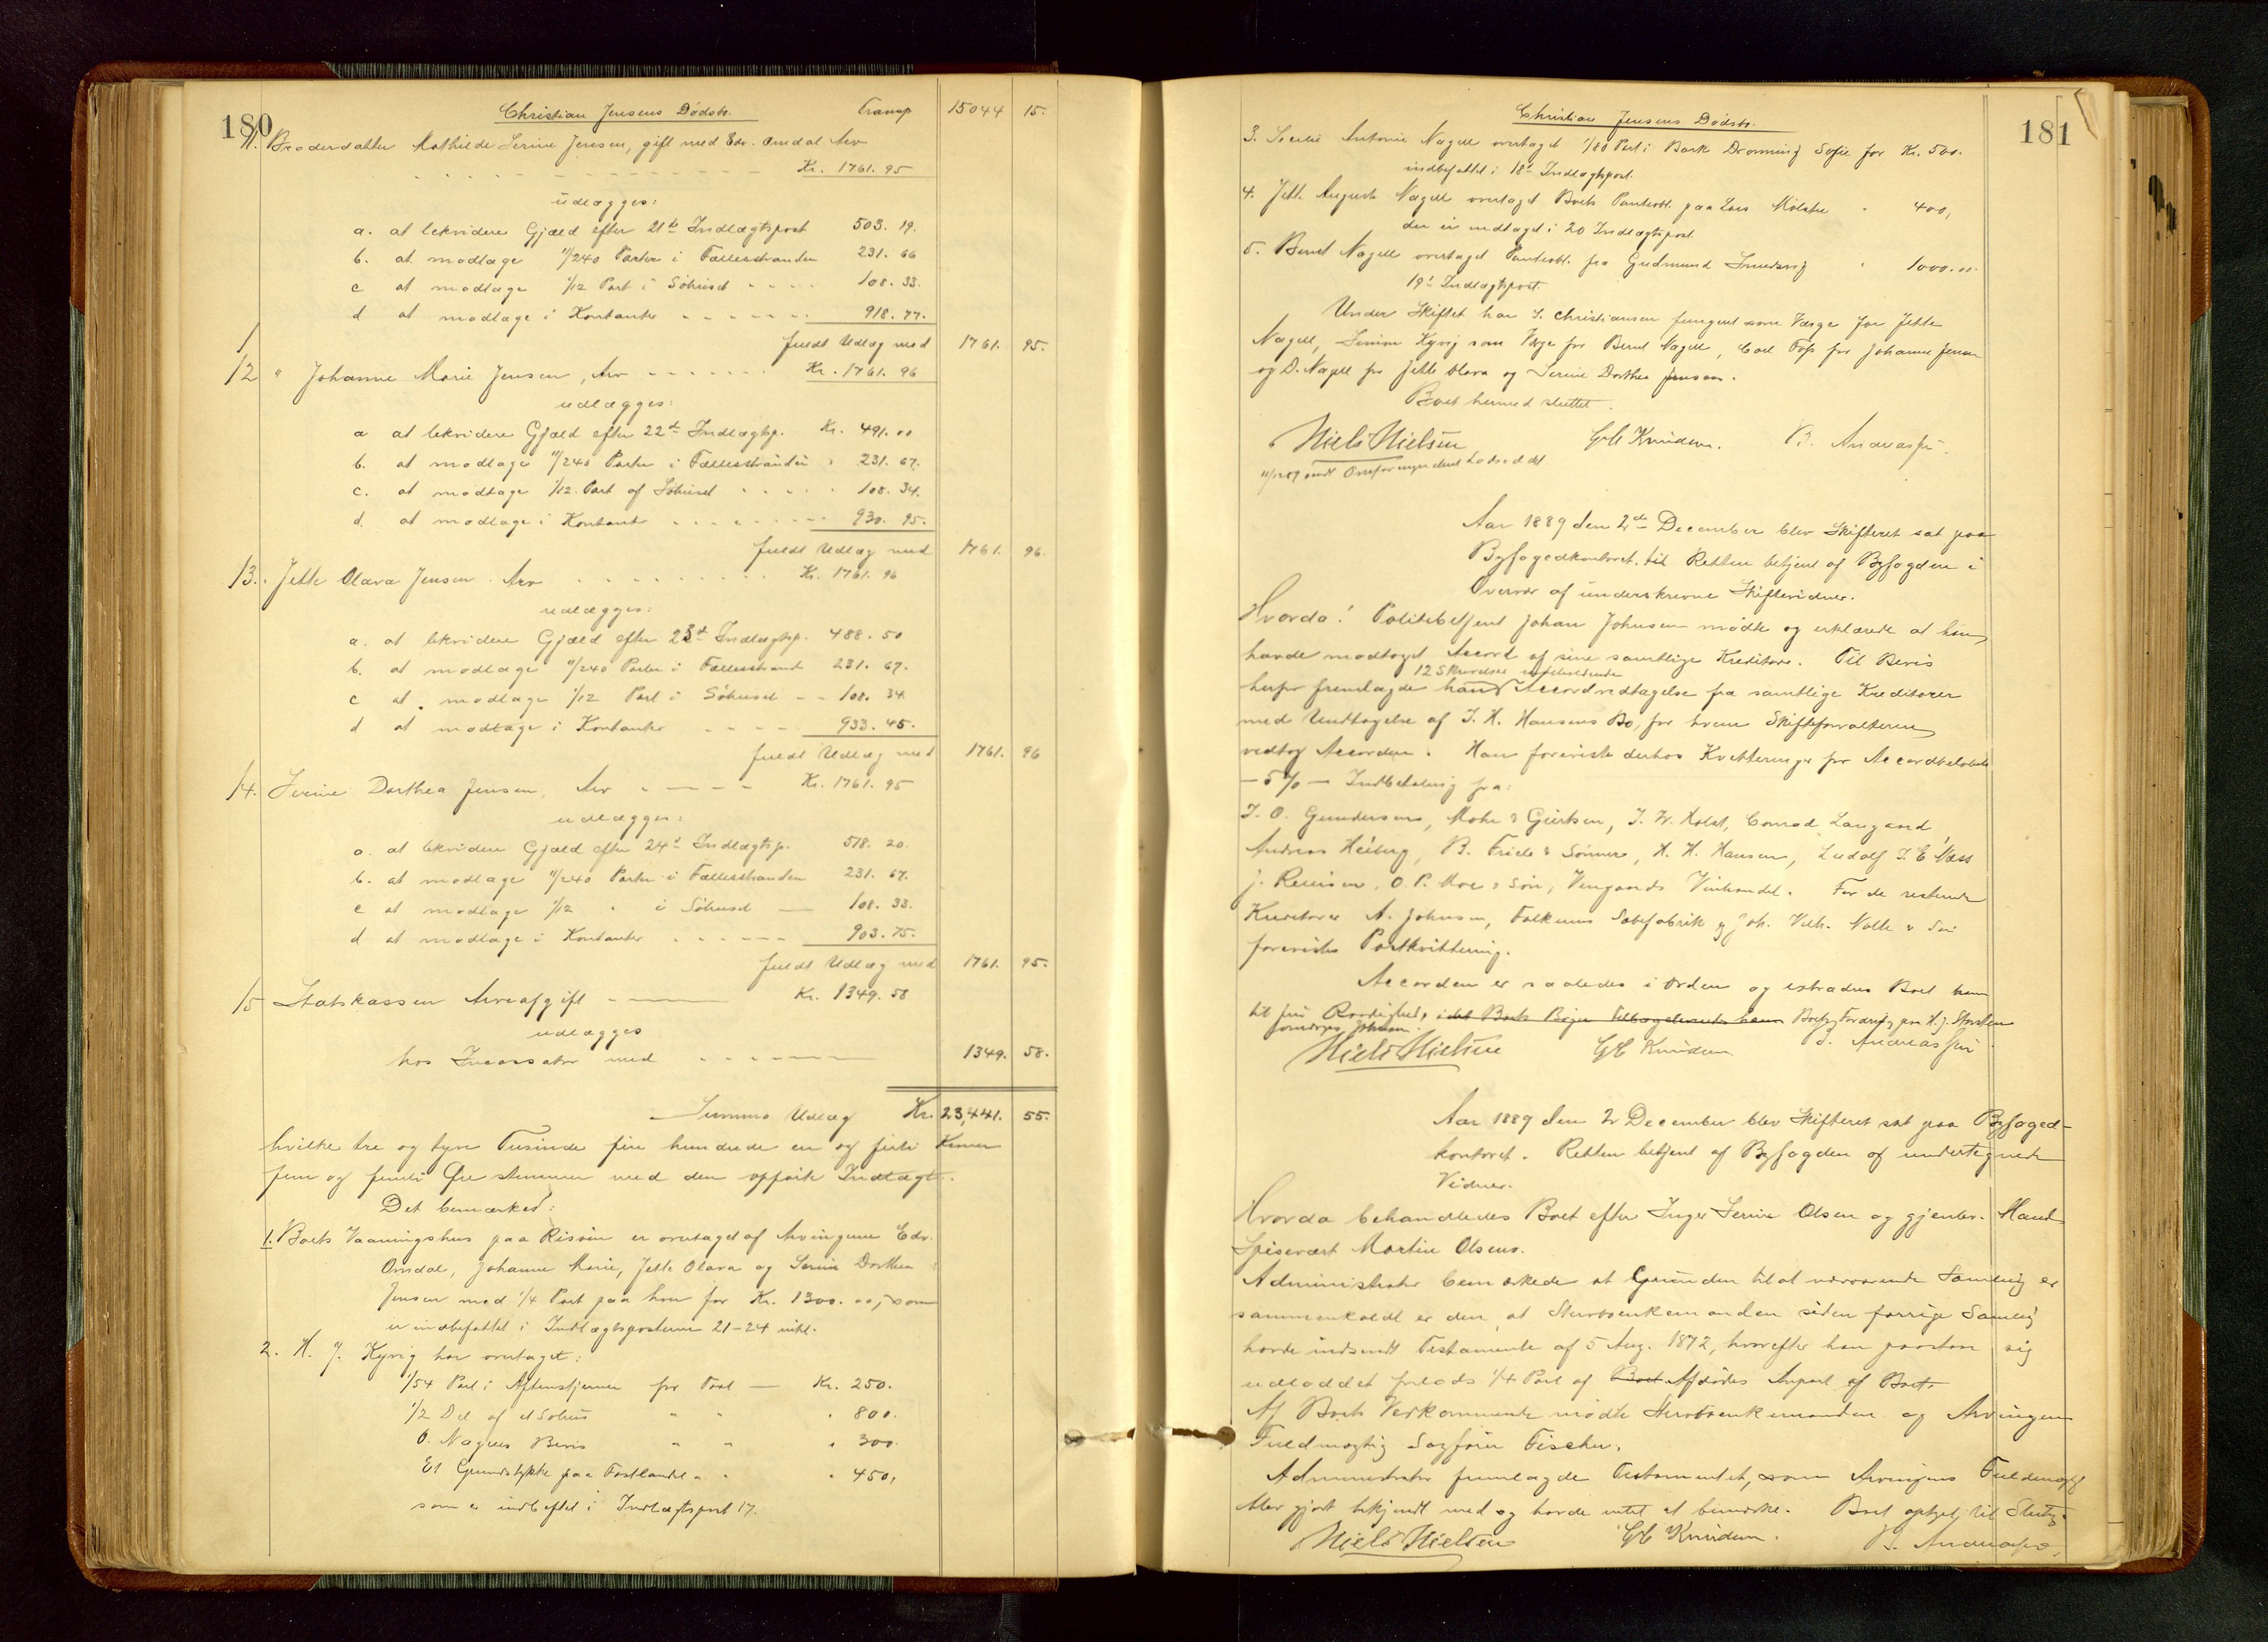 180
Christian Jensens Dødsbo. Transp 15044 15.
11. Broderdatter Mathilde Serine Jensen, gift med Edv. Omdal Arv
Kr. 1761. 95
udlægges:
a. at lekvidere Gjæld efter 21de Indlægtspost 503. 19.
b. at modtage 11/240 Parter i Fællesstranden 231. 66
c at modtage 1/12 Part i Søhuset 108. 33.
d at modtage i Kontanter 918. 77.
fuldt Udlæg med 1761. 95.
12 " Johanne Marie Jensen, Arv Kr. 1761. 96
udlægges:
a at lekvidere Gjæld efter 22de Indlægtsp. Kr. 491. 00
b. at modtage 11/240 Parter i Fællesstranden 231. 67.
c. at modtage 1/12 Part af Søhuset 108. 34.
d. at modtage i Kontant 930. 95.
fuldt Udlæg med 1761. 96.
13. Jette Olava Jensen Arv Kr. 1761. 96
udlægges:
a. at lekvidere Gjæld efter 23de Indlægtsp. 488. 50
b. at modtage 11/240 Parter i Fællesstrand 231. 67.
c at modtage 1/12 Part i Søhuset 108. 34
d at modtage i Kontanter 933. 45.
fuldt Udlæg med 1761. 96
14. Serine Dorthea Jensen Arv Kr. 1761. 95
udlægges:
a. at lekvidere Gjæld efter 24de Indlægtsp. 518. 20.
b. at modtage 11/240 Parter i Fællesstranden 231. 67.
c at modtage 1/12 " i Søhuset 108. 33.
d at modtage i Kontanter 903. 75.
fuldt Udlæg med 1761. 95.
15 Statskassen Arveafgift Kr. 1349. 58
udlægges
hos Incassator med 1349. 58.
Summa Udlæg Kr. 23,441. 55.
hvilke tre og tyve Tusinde fire hundrede en og firti Kroner
fem og femti Øre stemmer med den opførte Indtægt.
Det bemærkes:
1. Boets Vaaningshus paa Risøen er overtaget af Arvingerne Edv.
Omdal, Johanne Marie, Jette Olava og Serine Dorthea
Jensen med 1/4 Part paa hver for Kr. 1300. 00, som
er indbefattet i Indlægtsposterne 21-24 inkl.
2. H. J. Kyvig har overtaget:
1/54 Part i Aftenstjernen for Kr. 250.
1/2 Del af et Søhus " " " 800.
O. Nagels Bevis " " " 300.
Et Grundstykke paa Fastlandet " " " 450,
som er indbeftet i Indlægtspost 17.
181
Christian Jensens Dødsbo.
3. Antonie Nagell overtaget 1/80 Part i Bark Dronning Sofie for Kr. 500.
indbefattet i 18de Indlægtspost.
4. Jette Auguste Nagell overtaget Boets Panteobl. paa Lars " 400,
der er indtaget i 20 Indlægtspost.
5. Bernt Nagell overtaget Panteobl. fra Gudmund " 1000.00.
19de Indlægtspost.
Under Skiftet har S. Christiansen fungeret som Værge for Jette
Nagell, Simon Kyvig som Værge for Bernt Nagell, Carl for Johanne Jensen
og D. Nagell for Jette Olava og Serine Dorthea Jensen.
Boet hermed sluttet.
Niels Nielsen Knudsen. B. Andreassen
Aar 1889 den 2de December blev Skifteret sat paa
Byfogedkontoret. til Retten betjent af Byfogden i
Overvær af underskrevne Skiftevidner.
Hvorda! Politibetjent Johan Johnsen mødte og erklærede at han
havde modtaget Accord af sine samtlige Kreditorer. Til Bevis
12 Skrivelser indeholdende
herfor fremlagde han Accordvedtagelse fra samtlige Kreditorer
med Undtagelse af J. H. Hansens Bo, for hvem Skifteforvalteren
vedtog Accorden. Han foreviste derhos Kvitteringer for Accordbeløbets
- 5% - Indbetaling fra:
J. O. Gundersen, Mohr & Giertsen, J. W. Holst, Conrad Langaard,
Andreas Heiberg, B. Friele & Sønner, H. H. Hansen, Ludolf J. E. Næss
J. Reinisen, O. P. Moe & Søn, Vingaards Vinhandel. For de resterende
Kreditorer A. Johnsen, Falkums Sæbefabrik og Joh. Vilh. Nolte & Søn
forevistes Postkvittering.
Accorden er saaledes i Orden og extrades Boet ham
til fri Raadighed, i det Boets Bøger Tilbageleveredes ham Boets Fordring paa H. J.
Niels Nielsen Knudsen B. Andreassen
Aar 1889 den 2 December blev Skifteret sat paa Byfoged-
kontoret. Retten betjent af Byfogden og undertegnede
Vidner.
Hvorda behandledes Boet efter Inger Serine Olsen og gjenlev. Mand
Spisevært Martin Olsens.
Administrator bemærkede at Grunden til at nærværende Samling er
sammenkaldt er den, at Stervboenkemanden siden forrige Samling
havde indsendt Testamente af 5 Aug. 1872, hvorefter han paastaar sig
udloddet forlods 1/4 Part af Boet Afdødes Anpart af Boet.
Af Boets Vedkommende mødte Stervboenkemanden og Arvingens
Fuldmægtig Sagfører Fischer.
Administrator fremlagde Testamentet, som Arvingens Fuldmægtig
blev gjort bekjendt med og havde intet at bemærke. Boet optages til Slutning.
Niels Nielsen Knudsen. B. Andreassen.